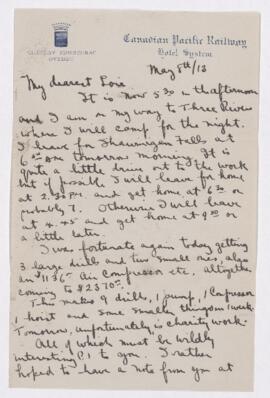 CHATEAU FRONTENAC
QUEBEC
Canadian Pacific Railway
Hotel System
May 8th/13
My dearest Lois
It is now 5 30 in th afternoon
and I am on my way to Three Rivers
where I will camp for the night.
I leave for Shawinigan Falls at
6 am tomorrow morning. It is
quite a little drive out to the work
but if possible I will leave for home
at 2.30 PM. and get home at 6 30 or
probably 7. Otherwise I will leave
at 4.45 and get home at 9 30 or
a little later.
I was fortunate again today getting
3 large drills and two small ones, also
an Air Compressor etc. Altogether
coming to $2370.
This makes 9 drills, 1 pump, 1 Compressor
1 hoist and some smaller things
Tomorrow, unfortunately, is charity work.
All of which must be wildly
interesting to you. I rather
hoped to have a note from you at